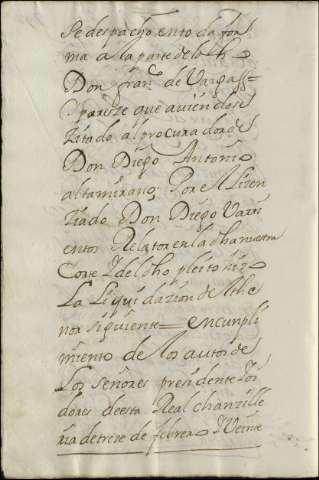 se despacho en toda for
ma a la parte de los
Don fran.co de Vargas =
Y pareze que aviendose
zitado al procurador de
Don Diego Antonio
altamirano; Por el lizen
ziado Don Diego Varri
entos Relator en la dha nuestra
Corte Y del dho pleito hizo
La Liquidazion del the
nor siguiente = en cunpli
miento de los autos de
Los señores presidente Y oi
dores de esta Real chanzille
ria de treze de febrero Y Veinte